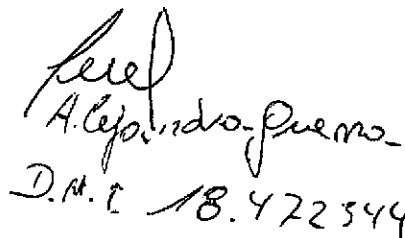 Alejandra Guerra
D.N.I 18.472344